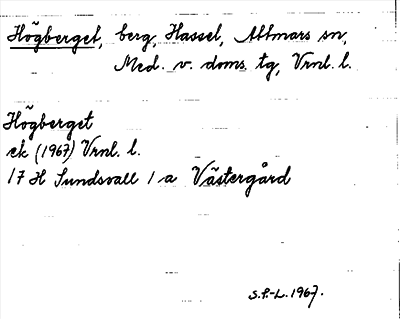 Högberget, berg, Hassel, Attmars sn,
Med. v. doms. tg, Vrnl. l.
Högberget
ek (1967) Vrnl. l.
17 H Sundsvall 1 a Västergård
S.P.-L. 1967.